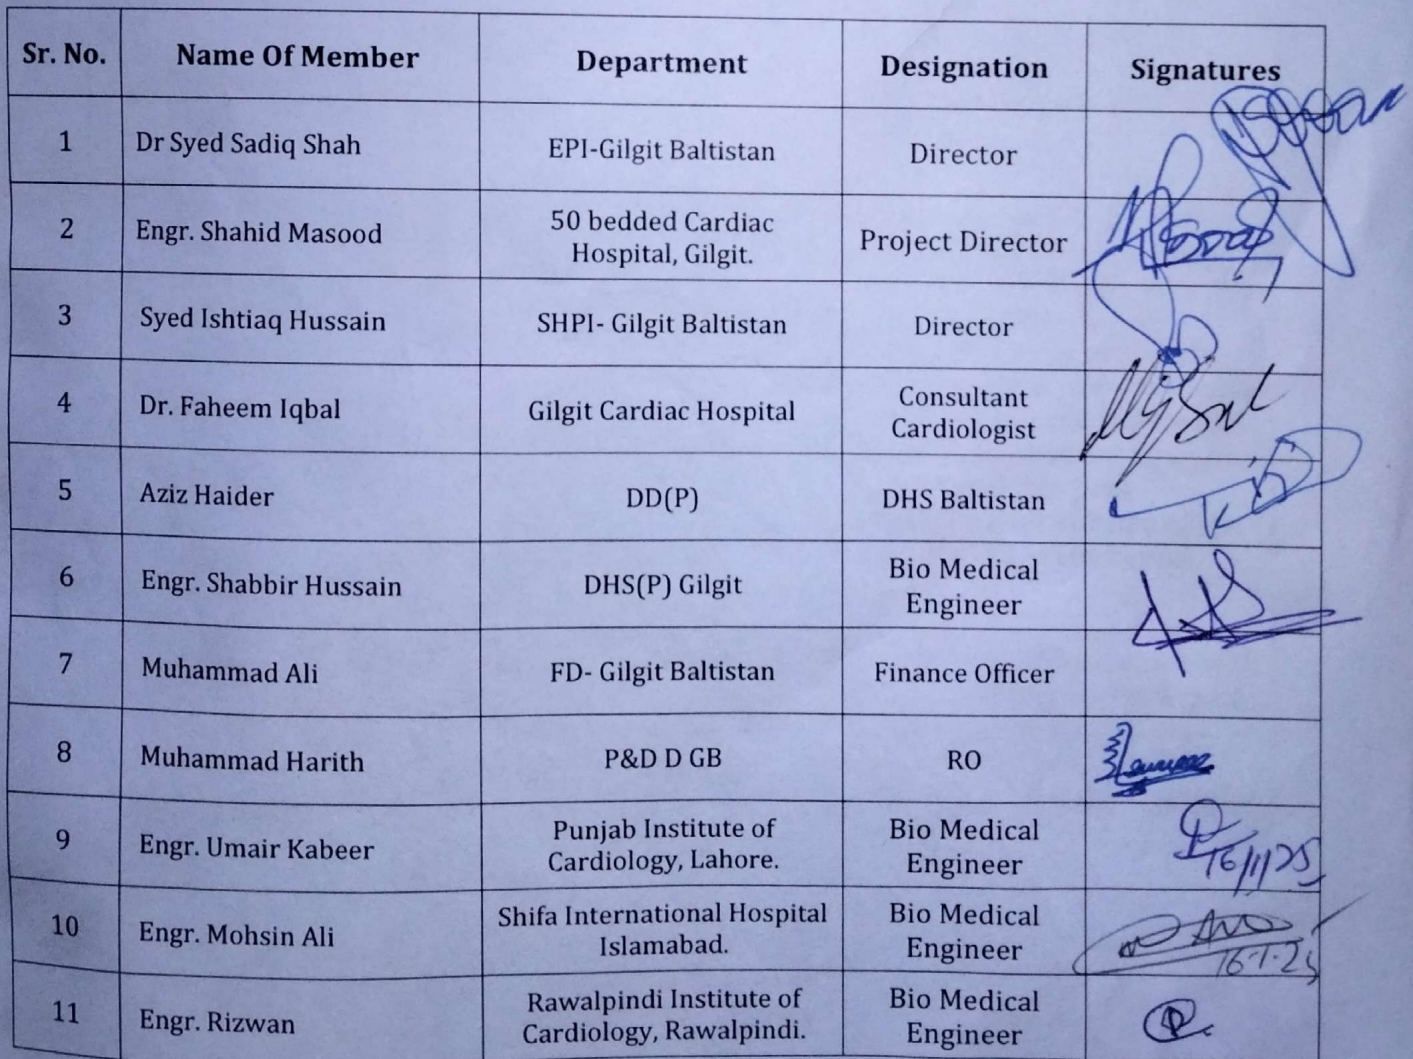 Sr. No. Name Of Member Department Designation Signatures
1 Dr Syed Sadiq Shah EPI-Gilgit Baltistan Director
2 Engr. Shahid Masood 50 bedded Cardiac Hospital, Gilgit. Project Director
3 Syed Ishtiaq Hussain SHPI- Gilgit Baltistan Director
4 Dr. Faheem Iqbal Gilgit Cardiac Hospital Consultant Cardiologist
5 Aziz Haider DD(P) DHS Baltistan
6 Engr. Shabbir Hussain DHS(P) Gilgit Bio Medical Engineer
7 Muhammad Ali FD- Gilgit Baltistan Finance Officer
8 Muhammad Harith P&D D GB RO
9 Engr. Umair Kabeer Punjab Institute of Cardiology, Lahore. Bio Medical Engineer 16/1/25
10 Engr. Mohsin Ali Shifa International Hospital Islamabad. Bio Medical Engineer 16-1-25
11 Engr. Rizwan Rawalpindi Institute of Cardiology, Rawalpindi. Bio Medical Engineer